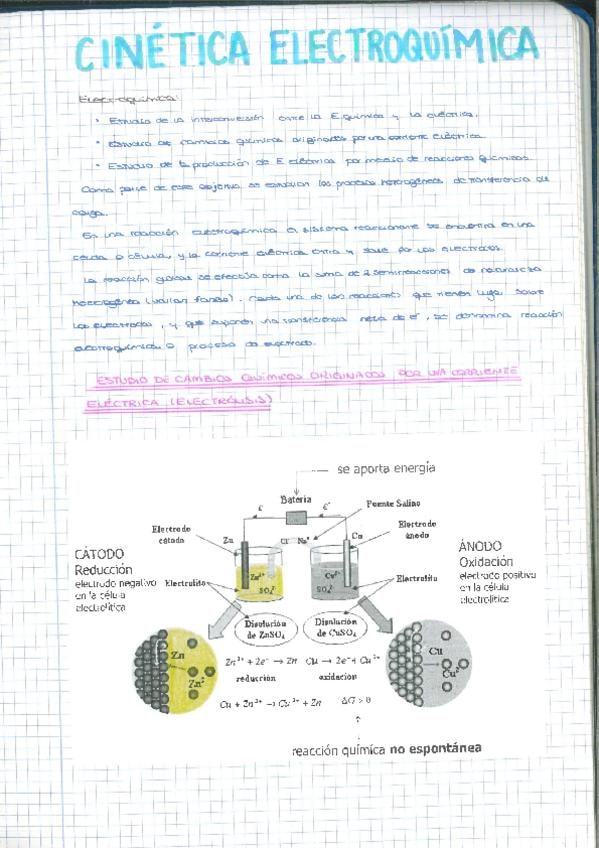 CINÉTICA ELECTROQUÍMICA
Electroquímica:
• Estudio de la interconversión entre la E química y la eléctrica.
• Estudio de cambios químicos originados por una corriente eléctrica
• Estudio de la producción de E eléctrica por medio de reacciones químicas.
Como parte de este objetivo se estudian los procesos heterogéneos de transferencia de
carga.
En una reacción electroquímica el sistema reaccionante se encuentra en una
celda o célula, y la corriente eléctrica entra y sale por los electrodos.
La reacción global se efectúa como la suma de 2 semirreacciones de naturaleza
heterogénea (varias fases). Cada una de las reacciones que tienen lugar sobre
los electrodos, y que suponen una transferencia neta de e⁻, se denomina reacción
electroquímica o proceso de electrodo.
ESTUDIO DE CAMBIOS QUÍMICOS ORIGINADOS POR UNA CORRIENTE
ELÉCTRICA (ELECTRÓLISIS)
se aporta energía
Batería
Puente Salino
Electrodo
cátodo
Zn
Cl⁻
Na⁺
Cu
Electrodo
ánodo
CÁTODO
Reducción
electrodo negativo
en la célula
electrolítica
Electrolito
Zn²⁺
SO₄²⁻
Cu²⁺
SO₄²⁻
Electrolito
ÁNODO
Oxidación
electrodo positivo
en la célula
electrolítica
Disolución
de ZnSO₄
Disolución
de CuSO₄
Zn
Zn²⁺
Cu
Cu²⁺
Zn²⁺ + 2e⁻ → Zn
Cu → 2e⁻ + Cu²⁺
reducción
oxidación
Cu + Zn²⁺ → Cu²⁺ + Zn
ΔG > 0
reacción química no espontánea